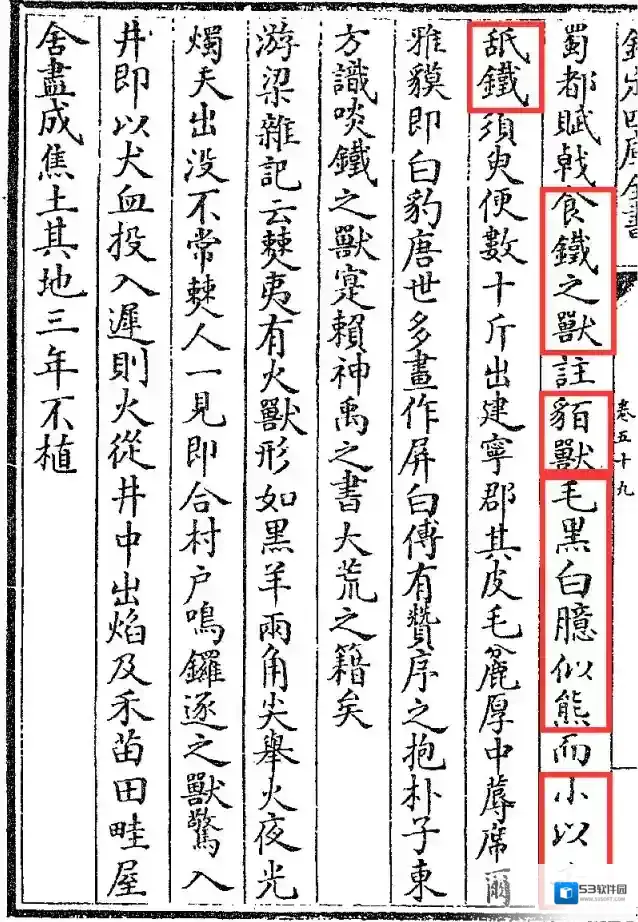 欽定四庫全書
卷五十九
蜀都賦戟食鐵之獸註貊獸毛黑白臆似熊而小以
舐鐵須臾便數十斤出建寧郡其皮毛麄厚中蓐席爾
雅貘即白豹唐世多畫作屏白傅有贊序之抱朴子東
方識啖鐵之獸寔賴神禹之書大荒之籍矣
游梁雜記云僰夷有火獸形如黑羊兩角尖舉火夜光
燭天出没不常僰人一見即合村户鳴鑼逐之獸驚入
井即以犬血投入遲則火從井中出焰及禾苗田畦屋
舍盡成焦土其地三年不植
53软件园